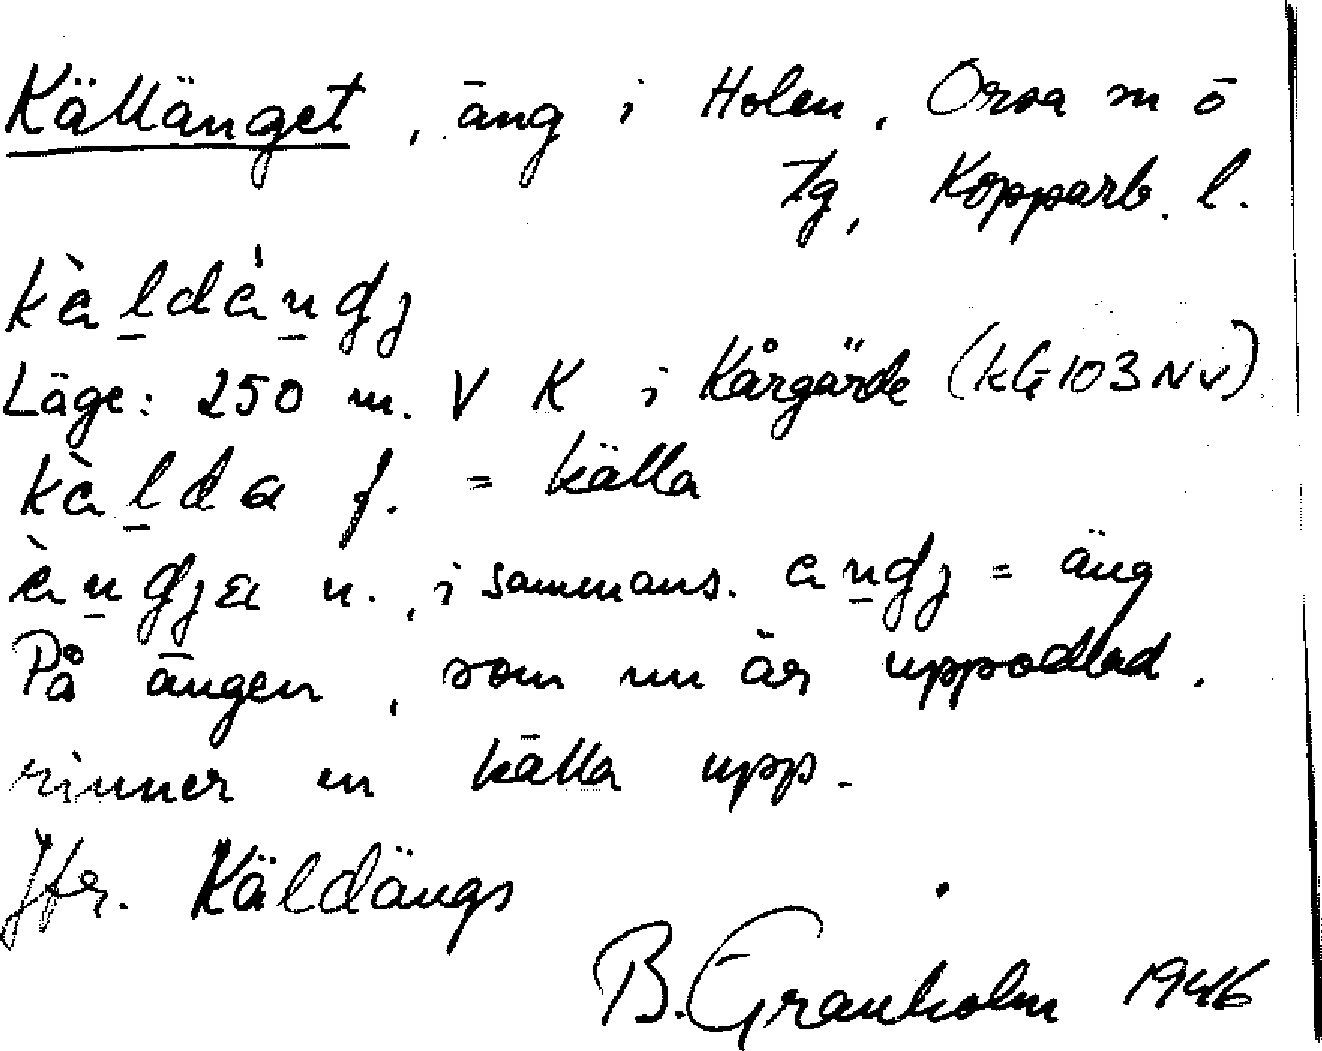 Källänget, äng i Holen, Orsa m ö
Tg, Kopparb. l.
kàldàngj
Läge: 250 m. V K i Kårgärde (KG 103 NV)
kàlda f. = källa
àngja n., i sammans. angj = äng
På ängen, som nu är uppodlad,
rinner en källa upp.
Jfr. Käldängs
B. Granholm 1946